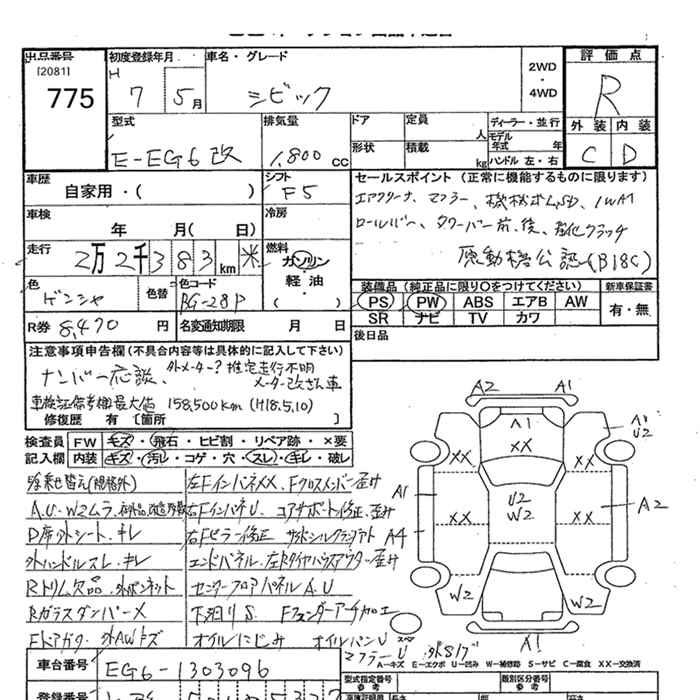 出品番号 初度登録年月 車名・グレード 2WD・4WD 評価点
[2081]
775 H 7 5月 シビック R
型式 排気量 ドア 定員 人 ディーラー・並行 外装 内装
E-EG6改 1,800cc 形状 積載 kg モデル年式 年 ハンドル 左・右 C D
車歴 シフト セールスポイント (正常に機能するものに限ります)
自家用・( ) F5 エアクリーナ、マフラー、
車検 冷房
年 月( 日) ロールバー、タワーバー前、後、強化クラッチ
走行 燃料
2万2千383km ※ ガソリン・軽油・( ) 原動機公認(B18C)
色 色替 色コード 装備品 (純正品に限り○をつけてください) 新車保証書
ゲンシャ BG-28P PS PW ABS エアB AW 有・無
SR ナビ TV カワ
R券 8,470円 名変通知期限 月 日 後日品
注意事項申告欄(不具合内容等は具体的に記入して下さい)
ナンバー応談、外メーター? 推定走行不明
メーター改ざん車
車検証備考欄最大値 158,500km (H18.5.10)
修復歴 有 [箇所 ]
検査員 FW キズ・飛石・ヒビ割・リペア跡・×要
記入欄 内装 キズ・汚レ・コゲ・穴・スレ・キレ・破レ
左FインパネXX、Fクロスメンバー歪ミ
A.U.W2ムラ 右FインパネU コアサポート修正、歪ミ
D席外シート、キレ 右Fピラー修正 サイドシル
外ハンドルスレ、キレ エンドパネル、左R 歪ミ
Rトリム欠品、外ボンネット センターフロアパネルA.U
RガラスダンパーX 下廻りS Fフェンダーアーチ加工
外AWキズ オイルにじみ オイルパンU
マフラーU
A2 A1
A1
XX
XX XX
A1
U2
A1 U2 W2 A2
XX XX
A4
W2 W2
スペア
A1
A-キズ E-エクボ U-凹み W-補修跡 S-サビ C-腐食 XX-交換済
車台番号 EG6-1303096 型式指定番号 参考 類別区分番号 参考
登録番号